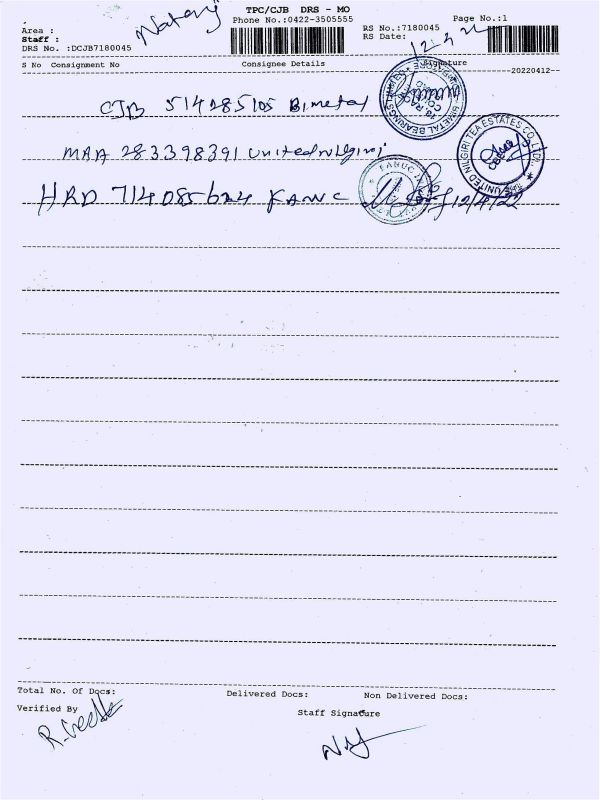 TPC/CJB DRS - MO
Nataraj
Phone No.:0422-3505555
Page No.:1
Area :
Staff :
RS No.:7180045
RS Date:
DRS No. :DCJB7180045
S No Consignment No
Consignee Details
Signature
--20220412--
CJB 514285105 Bimetal
MAA 283398391 United nilgiri
HRD 714085624 FANUC
12/4/22
BIMETAL BEARINGS LIMITED
THE UNITED NILGIRI TEA ESTATES CO. LTD.
FANUC
Total No. Of Docs:
Delivered Docs:
Non Delivered Docs:
Verified By
Staff Signature